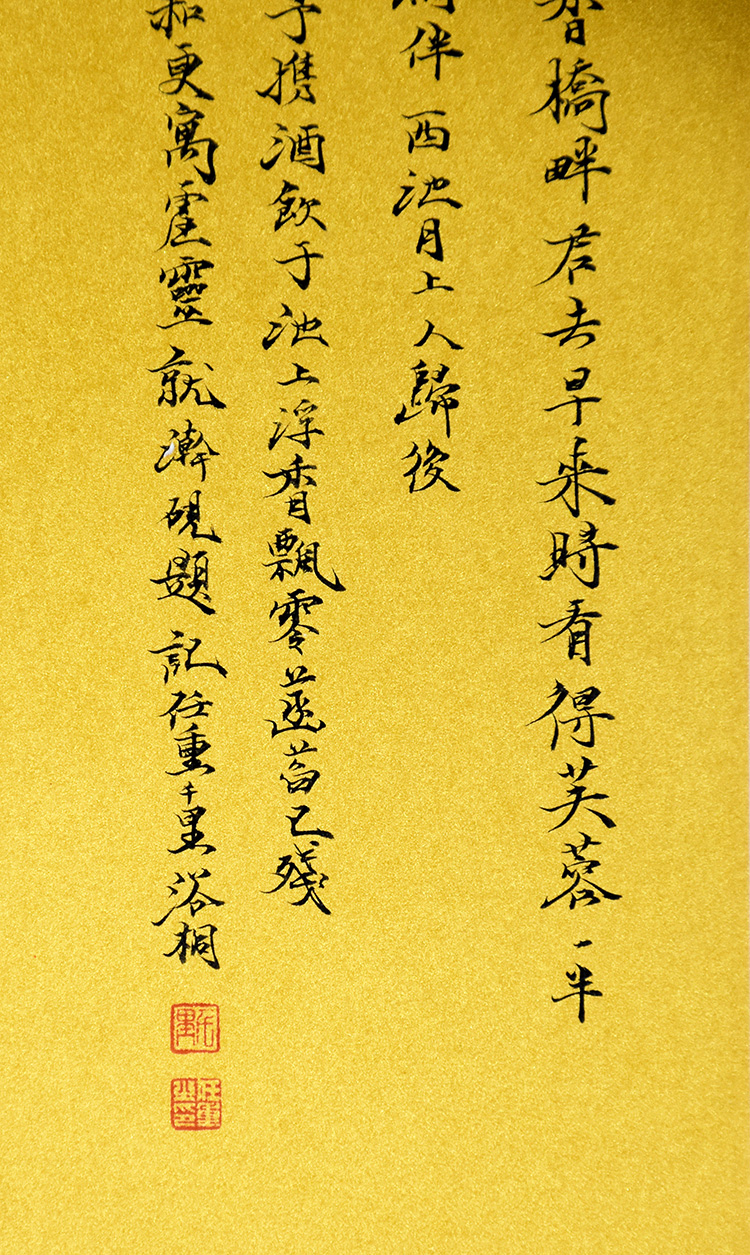 香橋畔君去早來時看得芙蓉一半
伴西池月上人歸後
予携酒飲于池上浮香飄零菡萏已殘
和更寓靈就硯題記任重千里浴桐